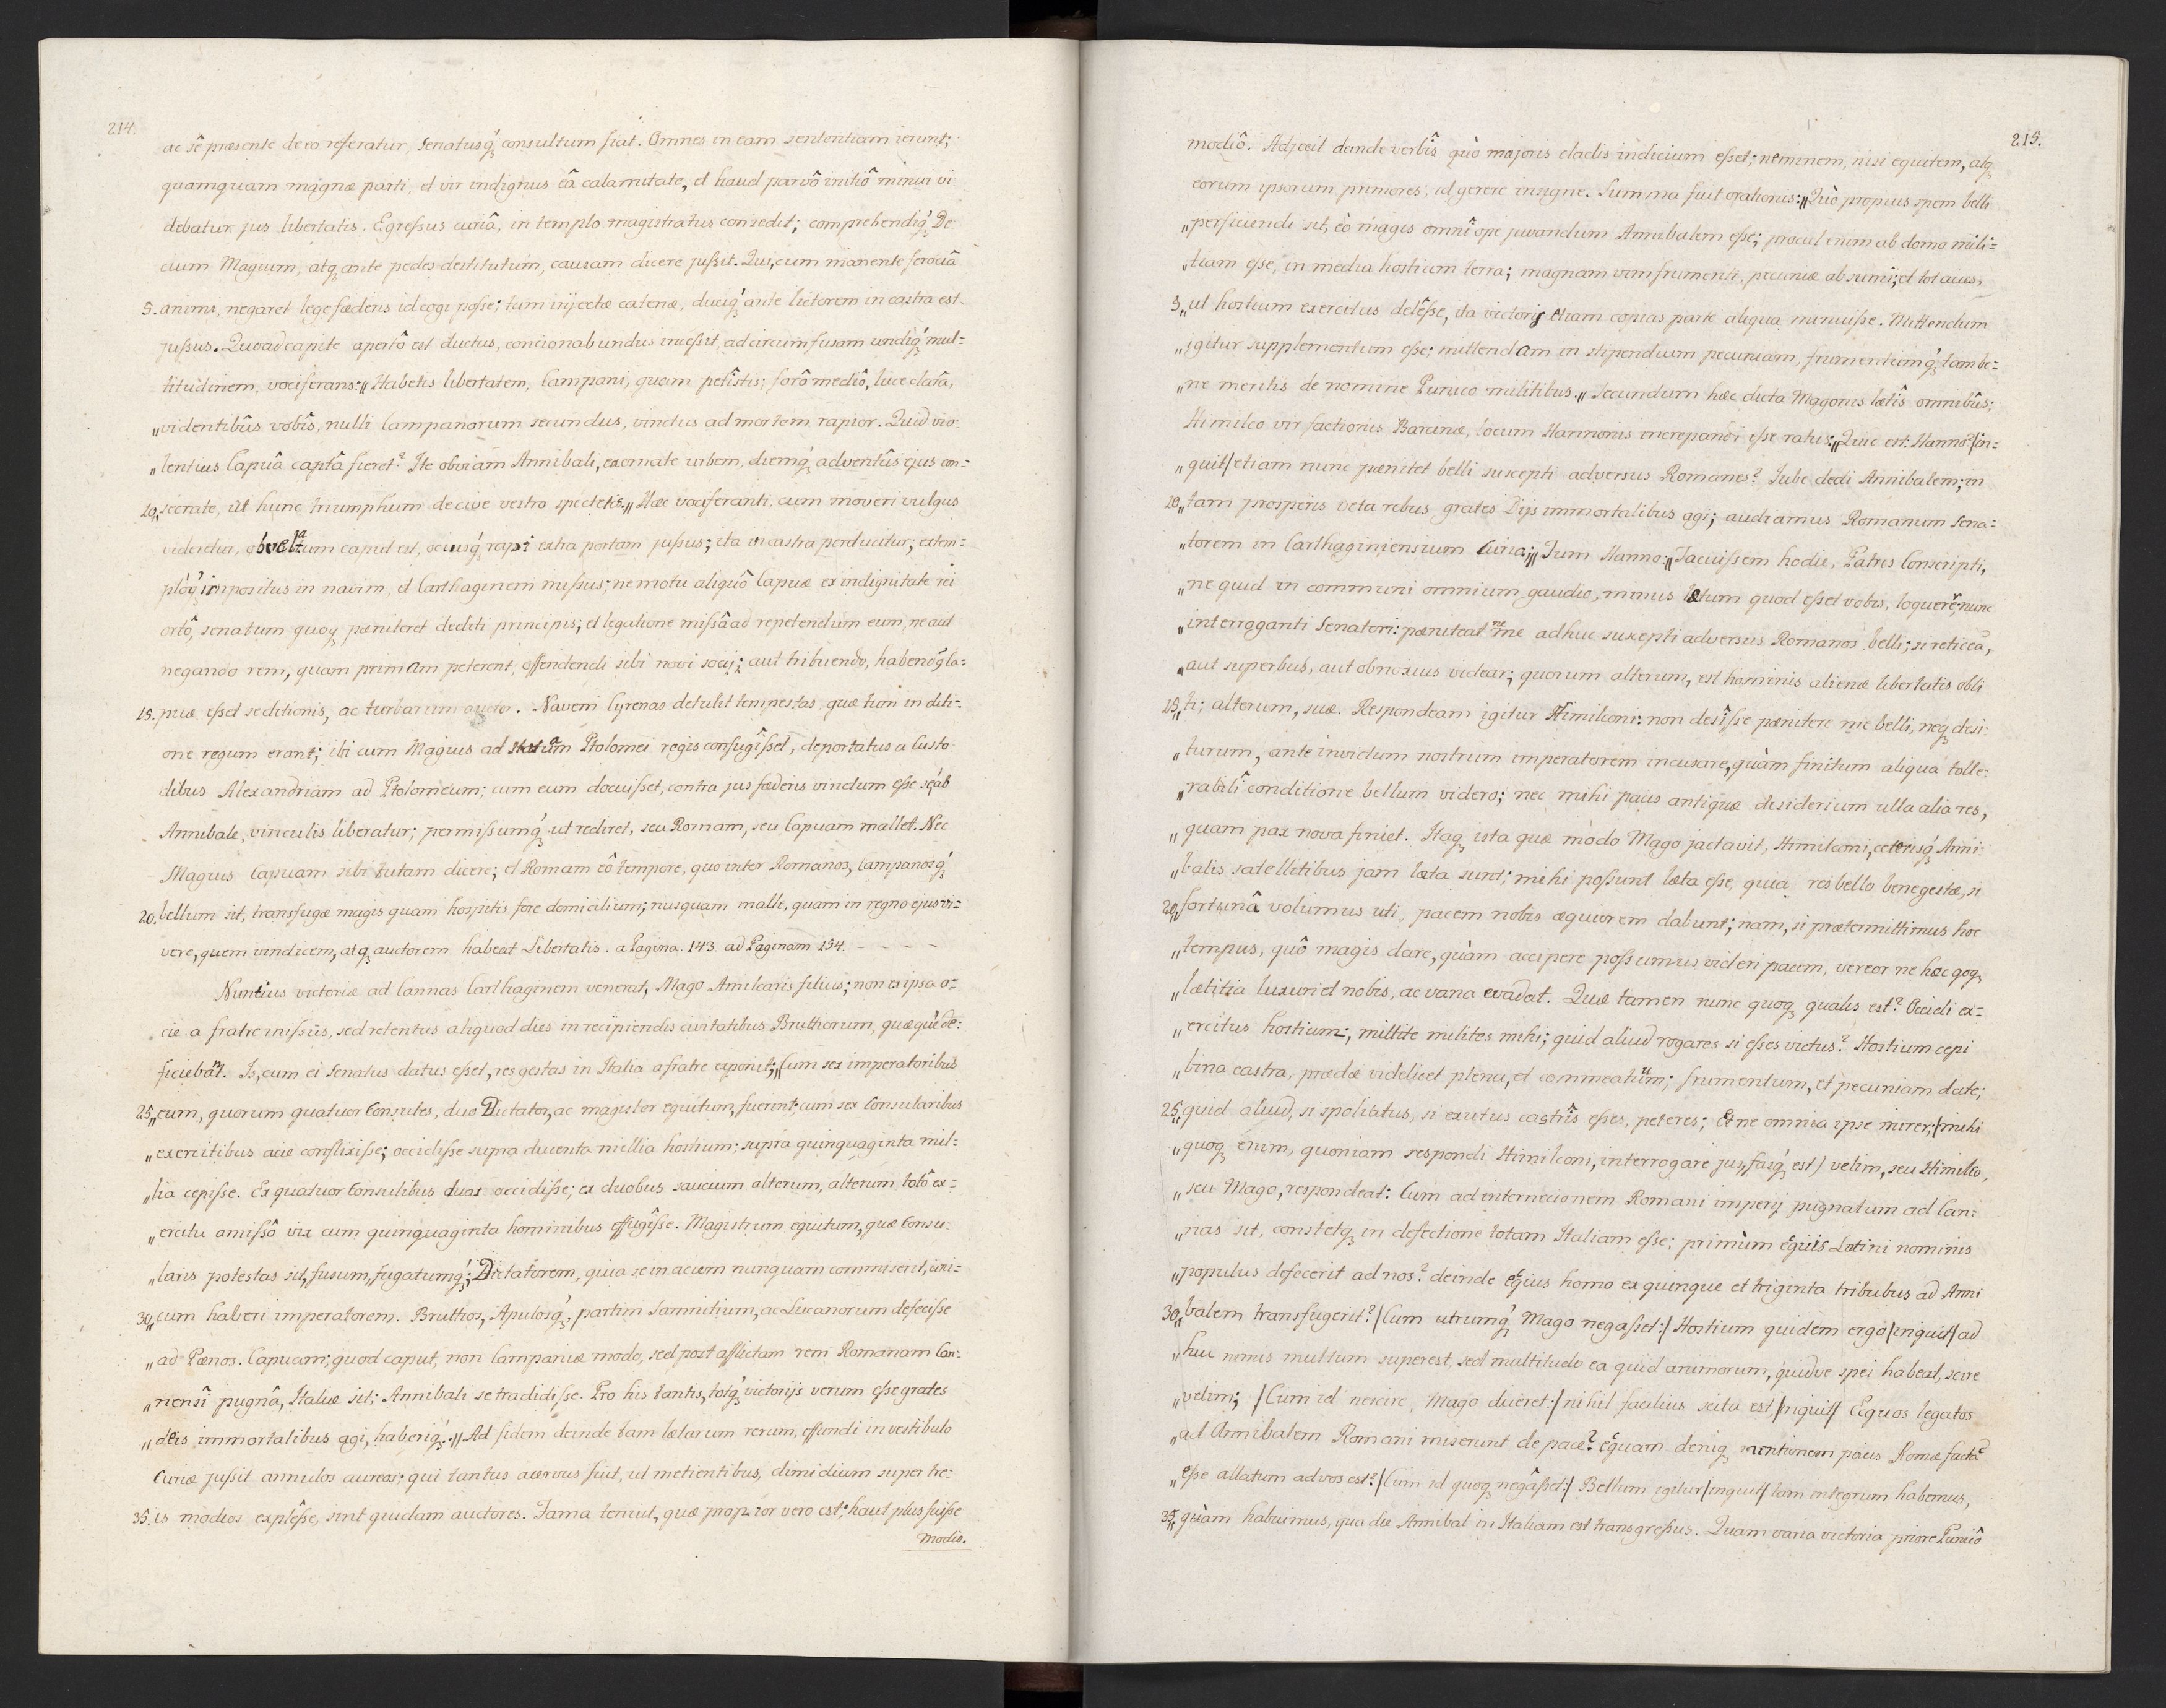 214.
ac sê præsente de eo referatur, Senatusq́ꝫ consultum fiat. Omnes in eam sententiam ierunt;
quamquam magnæ parti, et vir indignus eâ calamitate, et haud parvô initiô minui vi
debatur jus libertatis. Egressus curiâ, in templo magistratus consedit; comprehendiq́ꝫ De
cium Magium, atqꝫ ante pedes destitutum, causam dicere jussit. Qui, cum manente ferociâ
5. animi, negaret lege fœderis id cogi posse; tum injectæ catenæ, duciq́ꝫ ante lictorem in castra est
jussus. Quoad capite apertô est ductus, concionabundus incessit, ad circumfusam undiq́ꝫ mul=
titudinem, vociferans: „Habetis libertatem, Campani, quam petîstis; forô mediô, luce clarâ,
„videntibûs vobîs, nulli Campanorum secundus, vinctus ad mortem rapior. Quid vio:
„lentius Capuâ captâ fieret? Ite obviam Annibali, exornate urbem, diemq́ꝫ adventûs ejus con=
10.„secrate, ut hunc triumphum de cive vestro spectetis„ Hæc vociferanti, cum moveri vulgus
videretur, obvolutum caput est, ociusq́ꝫ rapi extra portam jussus; ita in castra perducitur; extem=
plóq́ꝫ impositus in navim, et Carthaginem missus; ne motu aliquô Capuæ ex indignitate rei
ortô, senatum quoqꝫ pæniteret dediti principis; et legatione missâ ad repetendum eum, ne aut
negando rem, quam primam peterent, offendendi sibi novi socij; aut tribuendo, habendꝫ Ca=
15. puæ esset seditionis, ac turbarum auctor. Navem Cyrenas detulit tempestas, quæ tum in diti=
one regum erant; ibi cum Magius ad statuam Ptolomei regis confugîsset, deportatus a custo
dibus Alexandriam ad Ptolomeum; cum eum docuisset, contra jus fœderis vinctum esse se ab
Annibale, vinculis liberatur; permissumq́ꝫ ut rediret, seu Romam, seu Capuam mallet. Nec
Magius Capuam sibi tutam dicere; et Romam eô tempore, quo inter Romanos, Campanosq́ꝫ
20. bellum sit, transfugæ magis quam hospitis fore domicilium; nusquam malle, quam in regno ejus vi=
vere, quem vindicem, atqꝫ auctorem habeat Libertatis. a Pagina. 143. ad Paginam 154. - - - -
Nuntius victoriæ ad Cannas Carthaginem venerat, Mago Amilcaris filius; non ex ipsa a=
cie a fratre missus, sed retentus aliquod dies in recipiendis civitatibus Bruttiorum, quæque de=
ficiebant. Is, cum ei Senatus datus esset, res gestas in Italia a fratre exponit; „Cum sex imperatoribus
25.„eum, quorum quatuor Consules, duo Dictator, ac magister equitum, fuerint; cum sex Consularibus
„exercitibus acie conflixisse; occidisse supra ducenta millia hostium; supra quinquaginta mil=
„lia cepisse. Ex quatuor Consulibus duos occidisse; ex duobus saucium alterum, alterum totô ex=
„ercitu amissô vix cum quinquaginta hominibus effugîsse. Magistrum equitum, quæ Consu=
„laris potestas sit, fusum, fugatumq́ꝫ; Dictatorem, quia se in aciem nunquam commiserit, uni=
30.„cum haberi imperatorem. Bruttios, Apulosq́ꝫ, partim Samnitium, ac Lucanorum defecisse
„ad Pœnos. Capuam; quod caput, non Campaniæ modo, sed post afflictam rem Romanam Can=
„nensî pugnâ, Italiæ sit; Annibali se tradidisse. Pro his tantis, totq́ꝫ victorijs verum esse grates
„deis immortalibus agi, haberiq́ꝫ.„ Ad fidem deinde tam lætarum rerum, effundi in vestibulo
Curiæ jussit annulos aureos; qui tantus acervus fuit, ut metientibus, dimidium super tre:
35. is modios explêsse, sint quidam auctores. Fama tenuit, quæ propior vero est; haut plus fuisse
modio.
215.
modiô. Adjecit deinde verbîs quò majoris cladis indicium esset; neminem, nisi equitem, atqꝫ
eorum ipsorum primores, id gerere insigne. Summa fuit orationis: „Quò propius spem belli
„perficiendi sit, eò magis omni ope juvandum Annibalem esse; procul enim ab domo mili=
„tiam esse, in media hostium terra; magnam vim frumenti, pecuniæ absumi; et tot acies,
5.„ut hostium exercitus delêsse, ita victoris etiam copias parte aliqua minuisse. Mittendum
„igitur supplementum esse; mittendam in stipendium pecuniam, frumentumq́ꝫ tam be=
„ne meritis de nomine Punico militibus.„ Secundum hæc dicta Magonis lætîs omnibûs;
Himilco vir factionis Barcinæ, locum Hannonis increpandi esse ratus: „Quic est. Hanno /in=
„quit/ etiam nunc pænitet belli suscepti adversus Romanos? Iube dedi Annibalem; in
10.„tam prosperis veta rebus grates Dijs immortalibus agi; audiamus Romanum Sena=
„torem in Carthaginiensium Curia;„ Tum Hanno: „Tacuissem hodie, Patres Conscripti,
„ne quid in communi omnium gaudio, minus lætum quod esset vobis, loquerer; nunc
„interroganti Senatori: pæniteatne me adhuc suscepti adversus Romanos belli; si reticeã,
„aut superbus, aut obnoxius videar; quorum alterum, est hominis alienæ libertatis obli
15.„ti; alterum, suæ. Respondeam igitur Himilconi: non desîsse pænitere me belli, neqꝫ desi:
„turum, ante invictum nostrum imperatorem incusare, quàm finitum aliqua tolle=
„rabili conditione bellum videro; nec mihi pacis antiquæ desiderium ulla alia res,
„quam pax nova finiet. Itaqꝫ ista quæ modo Mago jactavit, Himilconi, ceterisq́ꝫ Anni:
„balis satellitibus jam læta sunt; mihi possunt læta esse, quia res bello bene gestæ, si
20.„fortunâ volumus uti, pacem nobis æquiorem dabunt; nam, si prætermittimus hoc
„tempus, quô magis dare, quàm accipere possumus videri pacem, vereor ne hæc qoqꝫ
„lætitia luxuriet nobis, ac vana evadat. Quæ tamen nunc quoqꝫ qualis est? Occidi ex=
„ercitus hostium:, mittite milites mihi; quid aliud rogares si esses victus? Hostium cepi
„bina castra, prædæ videlicet plena, et commeatuum; frumentum, et pecuniam date;
25.„quid aliud, si spoliatus, si exutus castrîs esses, peteres; Et ne omnia ipse mirer; /mihi
„quoqꝫ enim, quoniam respondi Himilconi, interrogare jus, fasq́ꝫ est) velim, seu Himilco,
„seu Mago, respondeat: Cum ad internecionem Romani imperij pugnatum ad Can=
„nas sit, constetqꝫ in defectione totam Italiam esse; primùm ecquis Latini nominis
„populus defecerit ad nos? deinde ecquis homo ex quinque et triginta tribubus ad Anni
30.„balem transfugerit? /Cum utrumq́ꝫ Mago negasset:/ Hostium quidem ergo /inquit/ ad
„huc nimis multum superest, sed multitudo ea quid animorum, quidve spei habeat, scire
„velim; /Cum id nescire, Mago diceret:/ nihil facilius scitu est /inquit/ Ecquos legatos
„ad Annibalem Romani miserunt de pace? ecquam deniqꝫ mentionem pacis Romæ factã
„esse allatum ad vos est? /Cùm id quoqꝫ negâsset:/ Bellum igitur /inquit/ tam integrum habemus,
35.„quàm habuimus, qua die Annibal in Italiam est transgressus. Quam varia victoria priore Punicô